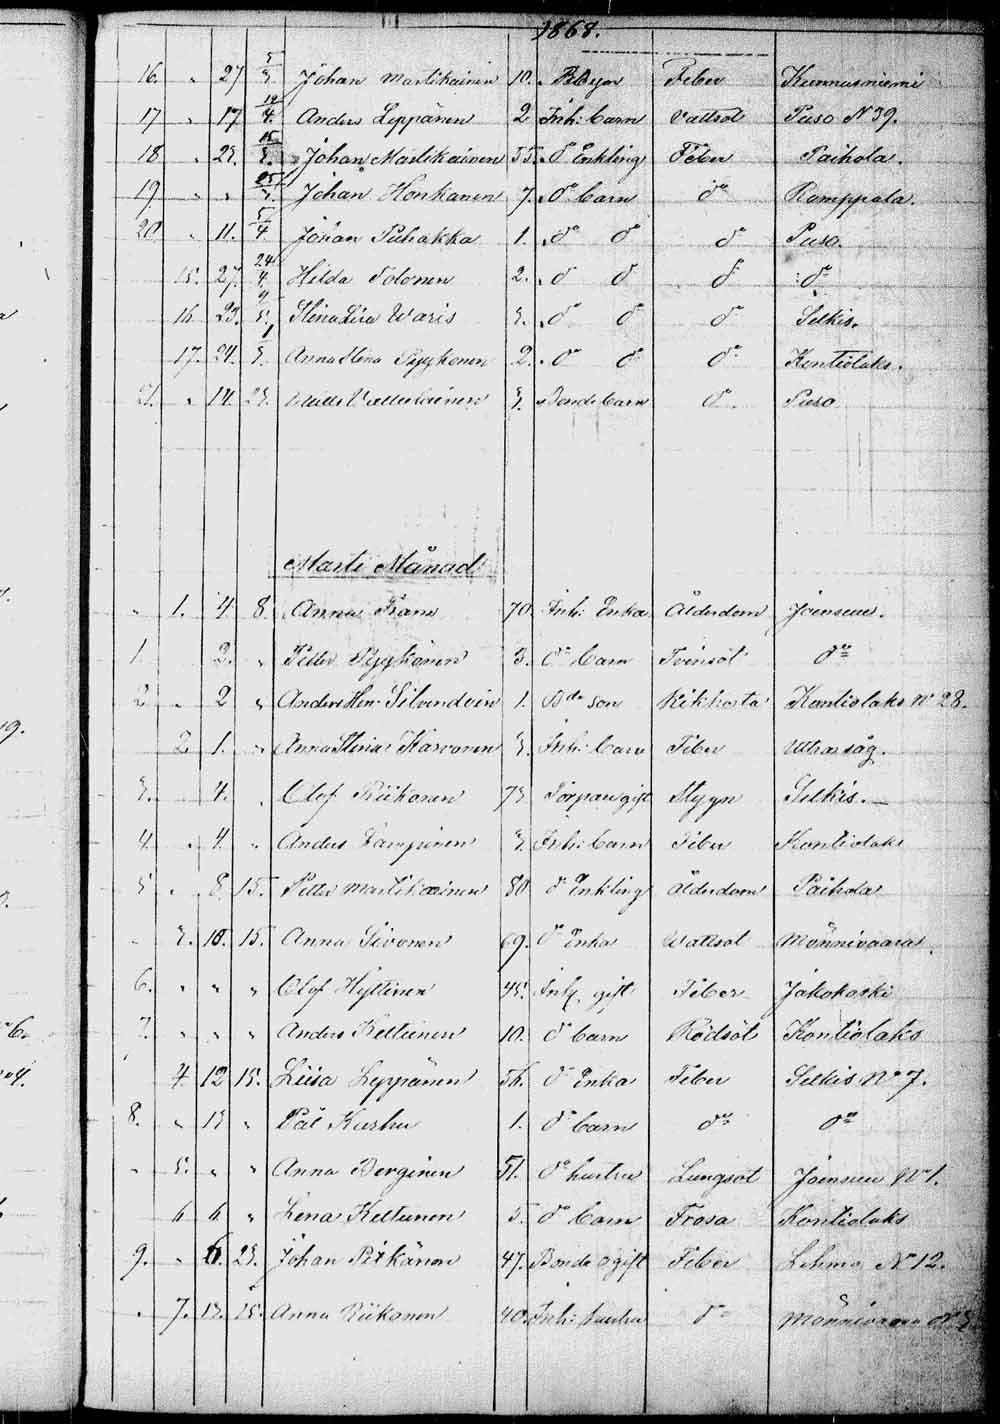 1868.
16. " 27 5/3 Johan Martikainen 10. Feber Kunnasniemi
17 " 17 12/4. Anders Leppänen 2 Inh: barn Vattsot Puso N 39.
18 " 23. 15/3. Johan Martikainen 55. do Enkling Feber Paihola.
19 " " 25/3. Johan Honkanen 7. do barn do Romppala.
20 " 11. 5/4 Johan Puhakka 1. do do do Puso.
15. 27. 24/4. Hilda Tolonen 2. do do do do
16 23. Stina Lisa Waris 3. do do do Selkis.
17. 24. Anna Stina Pyykönen 2. do do do Kontiolaks.
21. " 14. 23. 3. Bonde barn do Puso
Marti Månad
" 1. 4 8. Anna Fram 70. Inh: Enka Ålderdom Joensuu.
1 2. " Petter Pyykönen 3. do barn Tvinsot do
2 " 2 " Anders Hen: Silvendoin 1. Bde son Kikhosta Kontiolaks No 28.
2 1. " Anna Stina Karvonen 3. Inh: barn Feber Utra såg.
3. 4. " Olof Riikonen 73 Torpare gift Styyn Selkis.
4. " 4. " Anders Lampinen 3. Inh: barn Feber Kontiolaks
5 " 8. 15. Petter Martikainen 80. do Enkling ålderdom Paihola
" 3. 10. 15. Anna Sivonen 69. do Enka Wattsot Mönnivaara.
6. " " " Olof Hyttinen 43. Inh. gift Feber Jakokoski
7. " " " Anders Kettunen 10. do barn Rödsot Kontiolaks
4 12 15. Liisa Leppänen 56. do Enka Feber Selkis No 7.
8. " 13 " Pål Karhu 1. do barn do do
" 5. " " Anna Berginen 51. do hustru Lungsot Joensuu No 1.
6 6 " Lena Kettunen 5. do barn Frosa Kontiolaks
9. " 6. 23. Johan Pitkänen 47. Bonde ogift Feber Lehmo No 12.
" 7. 13. 15. Anna Riikonen 40. Inh: hustru do Mönnivaara No 3